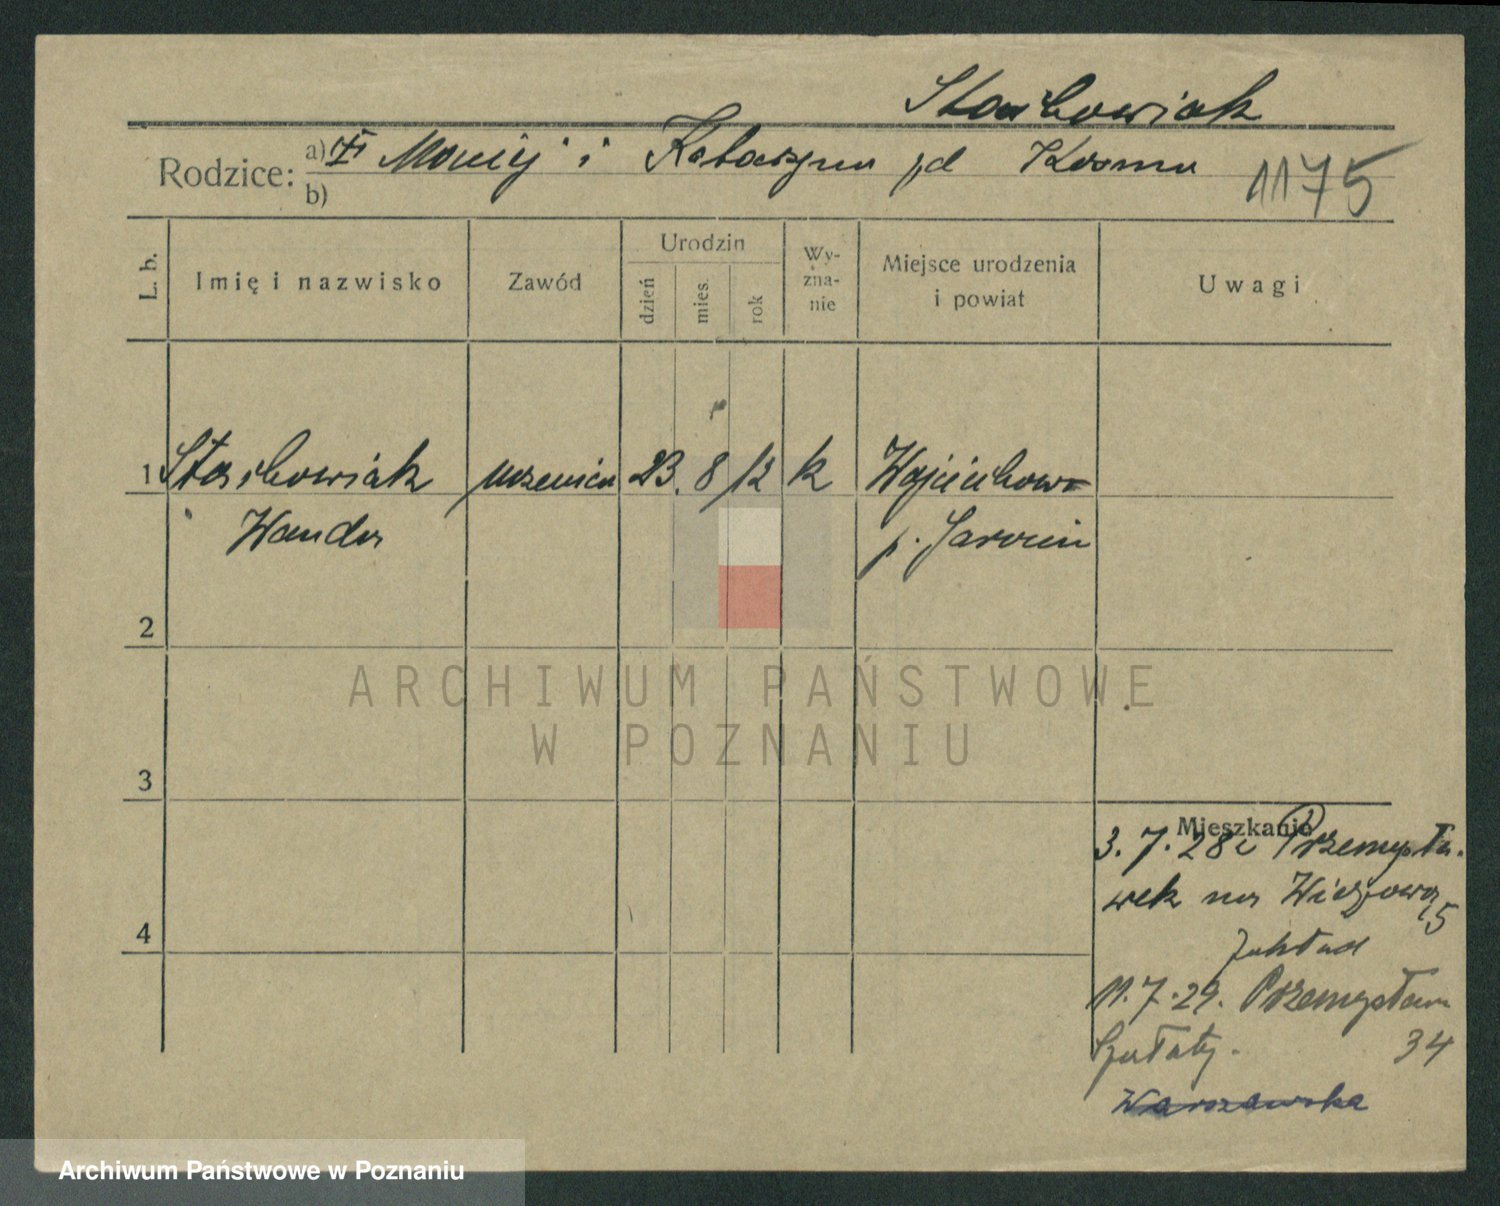 Stachowiak
Rodzice: a) Maciej i Katarzyna pd Kosma
b)
1175
L. b.
Imię i nazwisko
Zawód
Urodzin
dzień
mies.
rok
Wy-
zna-
nie
Miejsce urodzenia
i powiat
Uwagi
1 Stachowiak uczenica 23. 8 12 k Wojciechowo
Wanda p. Jarocin
2
3
4
Mieszkanie
3. 7. 28 z Przemysła-
wek na Wiczowa
15
Zakład
11. 7. 29. Przemysłowa
34
Warszawska
ARCHIWUM PAŃSTWOWE
W POZNANIU
Archiwum Państwowe w Poznaniu